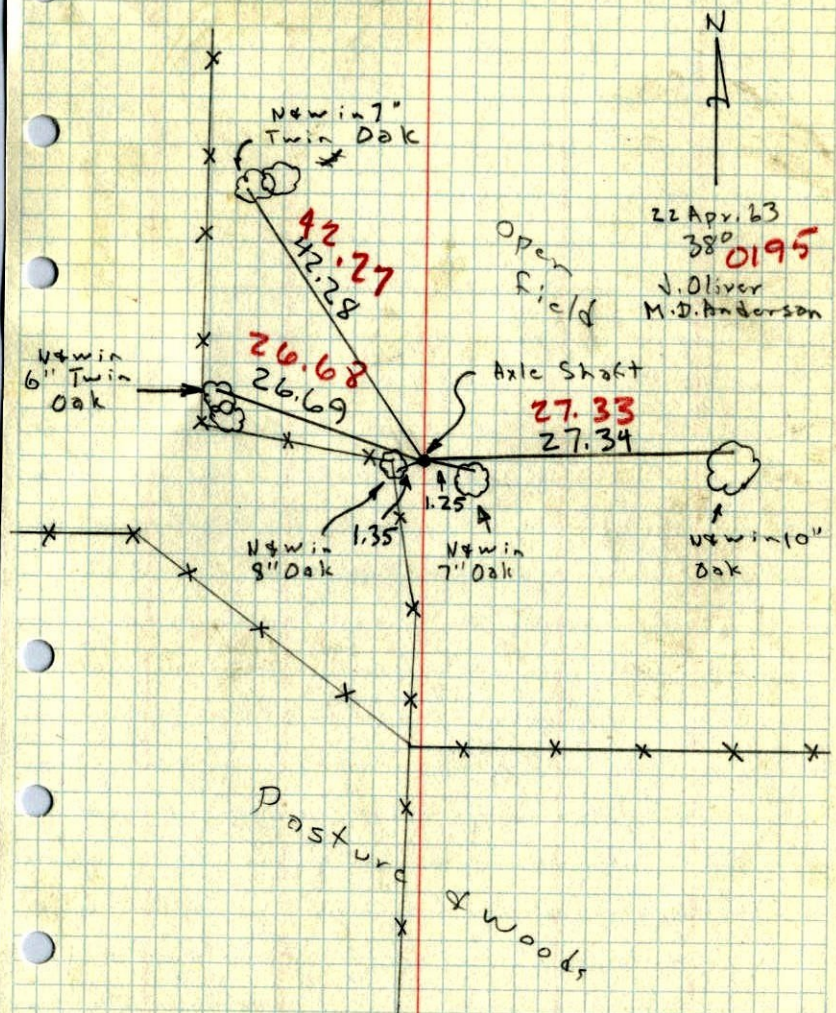 N
N&W in 7"
Twin Oak
22 Apr. 63
38°
0195
J. Oliver
M.D. Anderson
Open
Field
42.27
42.28
N&W in
6" Twin
Oak
26.68
26.69
Axle Shaft
27.33
27.34
1.25
1.35
N&W in
8" Oak
N&W in
7" Oak
N&W in 10"
Oak
Pasture
& Woods